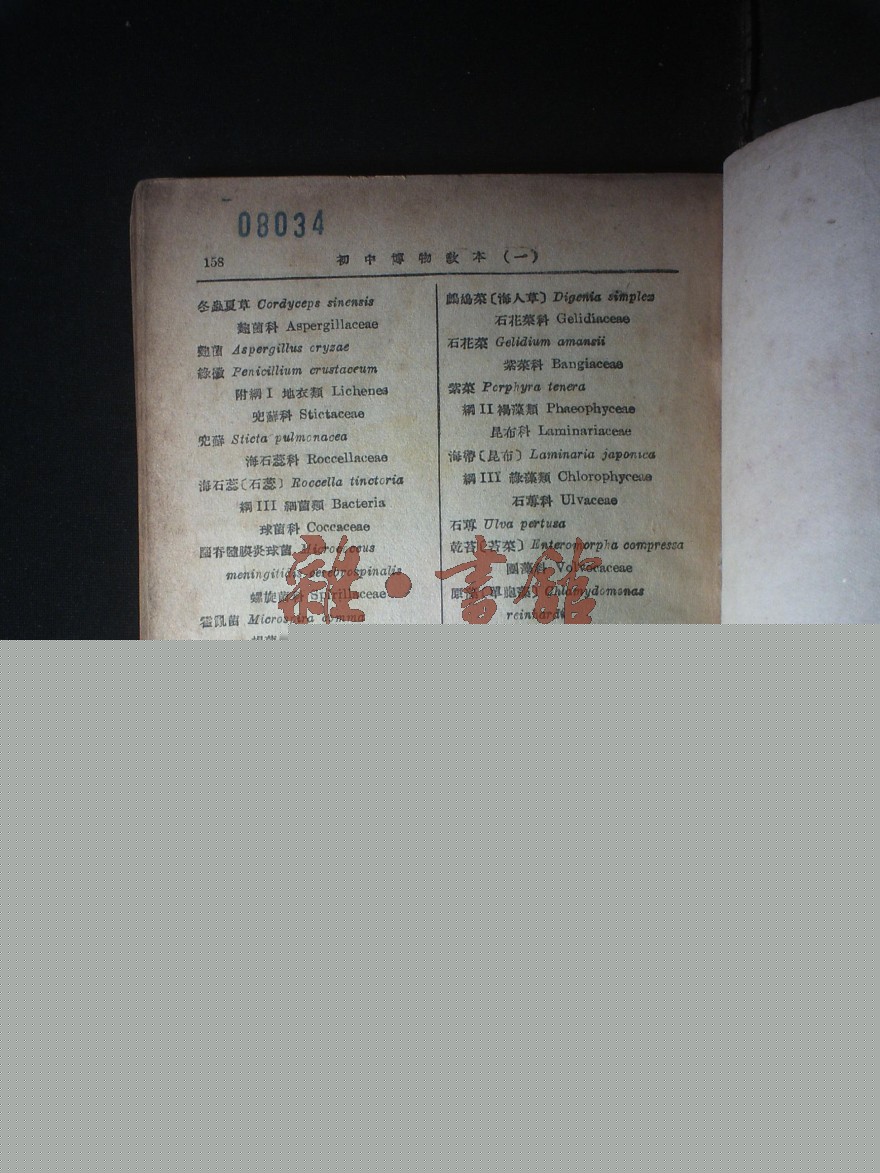 08034
158 初中博物教本(一)
冬蟲夏草 Cordyceps sinensis
麴菌科 Aspergillaceae
麴菌 Aspergillus oryzae
綠黴 Penicillium crustaceum
附綱 I 地衣類 Lichenes
兜蘚科 Stictaceae
兜蘚 Sticta pulmonacea
海石蕊科 Roccellaceae
海石蕊〔石蕊〕 Roccella tinctoria
綱 III 細菌類 Bacteria
球菌科 Coccaceae
腦脊髓膜炎球菌 Micrococcus
meningitidis cerebrospinalis
螺旋菌科 Spirillaceae
霍亂菌 Microspira comma
鷓鴣菜〔海人草〕 Digenia simplex
石花菜科 Gelidiaceae
石花菜 Gelidium amansii
紫菜科 Bangiaceae
紫菜 Porphyra tenera
綱 II 褐藻類 Phaeophyceae
昆布科 Laminariaceae
海帶〔昆布〕 Laminaria japonica
綱 III 綠藻類 Chlorophyceae
石蓴科 Ulvaceae
石蓴 Ulva pertusa
乾苔〔苔菜〕 Enteromorpha compressa
團藻科 Volvocaceae
〔單胞藻〕 Chlamydomonas
reinhardi
雜·書館